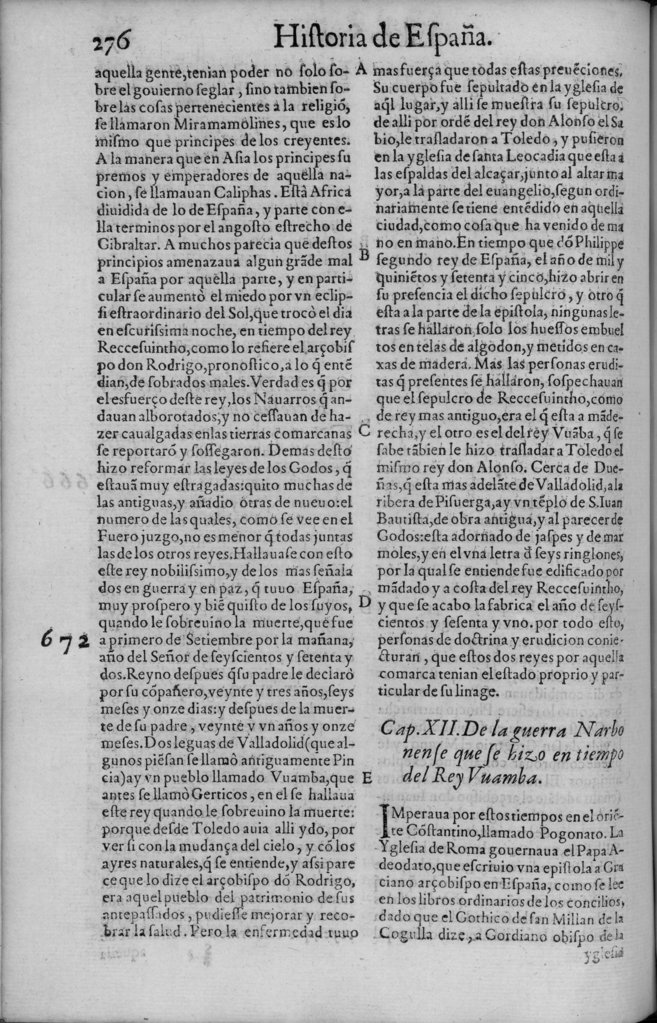 276
Hiſtoria de Eſpaña.
aquella gente, tenian poder no ſolo ſo-
bre el gouierno ſeglar, ſino tambien ſo-
bre las coſas pertenecientes à la religiõ,
ſe llamaron Miramamolines, que es lo
miſmo que principes de los creyentes.
A la manera que en Aſia los principes ſu
premos y emperadores de aquella na-
cion, ſe llamauan Caliphas. Eſtà Africa
diuidida de lo de Eſpaña, y parte con e-
lla terminos por el angoſto eſtrecho de
Gibraltar. A muchos parecia que deſtos
principios amenazaua algun grãde mal
a Eſpaña por aquella parte, y en parti-
cular ſe aumentò el miedo por vn eclip-
ſi eſtraordinario del Sol, que trocò el dia
en eſcuriſsima noche, en tiempo del rey
Reccesuintho, como lo refiere el arçobiſ
po don Rodrigo, pronoſtico, a lo q̃ entẽ
dian, de ſobrados males. Verdad es q̃ por
el esfuerço deſte rey, los Nauarros q̃ an-
dauan alborotados, y no ceſſauan de ha-
zer caualgadas en las tierras comarcanas
ſe reportarõ y ſoſſegaron. Demas deſto
hizo reformar las leyes de los Godos, q̃
eſtauã muy eſtragadas: quito muchas de
las antiguas, y añadio otras de nueuo: el
numero de las quales, como ſe vee en el
Fuero juzgo, no es menor q̃ todas juntas
las de los otros reyes. Hallauaſe con eſto
eſte rey nobiliſsimo, y de los mas ſeñala
dos en guerra y en paz, q̃ tuuo Eſpaña,
muy proſpero y biẽ quiſto de los ſuyos,
quando le ſobreuino la muerte, que fue
672
a primero de Setiembre por la mañana,
año del Señor de ſeyſcientos y ſetenta y
dos. Reyno deſpues q̃ ſu padre le declarò
por ſu cõpañero, veynte y tres años, ſeys
meſes y onze dias: y deſpues de la muer-
te de ſu padre, veynte y vn años y onze
meſes. Dos leguas de Valladolid (que al-
gunos piẽſan ſe llamò antiguamente Pin
cia) ay vn pueblo llamado Vuamba, que
antes ſe llamò Gerticos, en el ſe hallaua
eſte rey quando le ſobreuino la muerte:
porque deſde Toledo auia alli ydo, por
ver ſi con la mudança del cielo, y cõ los
ayres naturales, q̃ ſe entiende, y aſsi pare
ce que lo dize el arçobiſpo dõ Rodrigo,
era aquel pueblo del patrimonio de ſus
antepaſſados, pudieſſe mejorar y reco-
brar la ſalud. Pero la enfermedad tuuo
A
B
C
D
E
mas fuerça que todas eſtas preuẽciones.
Su cuerpo fue ſepultado en la ygleſia de
aq̃l lugar, y alli ſe mueſtra ſu ſepulcro.
de alli por ordẽ del rey don Alonſo el Sa
bio, le trasladaron a Toledo, y puſieron
en la ygleſia de ſanta Leocadia que eſta a
las eſpaldas del alcaçar, junto al altar ma
yor, a la parte del euangelio, ſegun ordi-
nariamente ſe tiene entẽdido en aquella
ciudad, como coſa que ha venido de ma
no en mano. En tiempo que dõ Philippe
ſegundo rey de Eſpaña, el año de mil y
quiniẽtos y ſetenta y cinco, hizo abrir en
ſu preſencia el dicho ſepulcro, y otro q̃
eſta a la parte de la epiſtola, ningunas le-
tras ſe hallaron, ſolo los hueſſos embuel
tos en telas de algodon, y metidos en ca-
xas de madera. Mas las perſonas erudi-
tas q̃ preſentes ſe hallaron, ſoſpechauan
que el ſepulcro de Reccesuintho, como
de rey mas antiguo, era el q̃ eſta a mãde-
recha, y el otro es el del rey Vuãba, q̃ ſe
ſabe tãbien le hizo trasladar a Toledo el
miſmo rey don Alonſo. Cerca de Due-
ñas, q̃ eſta mas adelãte de Valladolid, ala
ribera de Piſuerga, ay vn tẽplo de S. Iuan
Bautiſta, de obra antigua, y al parecer de
Godos: eſta adornado de jaſpes y de mar
moles, y en el vna letra đ ſeys ringlones,
por la qual ſe entiende fue edificado por
mãdado y a coſta del rey Reccesuintho,
y que ſe acabo la fabrica el año de ſeyſ-
cientos y ſeſenta y vno. por todo eſto,
perſonas de doctrina y erudicion conie-
cturan, que eſtos dos reyes por aquella
comarca tenian el eſtado proprio y par-
ticular de ſu linage.
Cap. XII. De la guerra Narbo
nenſe que ſe hizo en tiempo
del Rey Vuamba.
IMperaua por eſtos tiempos en el oriẽ-
te Cõſtantino, llamado Pogonato. La
Ygleſia de Roma gouernaua el Papa A-
deodato, que eſcriuio vna epiſtola a Gra
ciano arçobiſpo en Eſpaña, como ſe lee
en los libros ordinarios de los concilios,
dado que el Gothico de ſan Millan de la
Cogulla dize, a Gordiano obiſpo de la
ygleſia